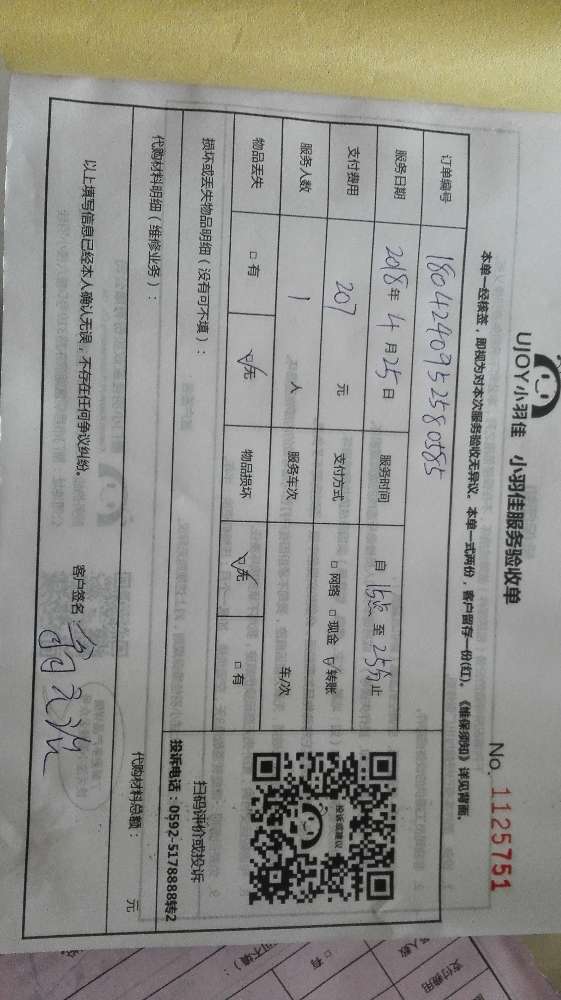 UJOY小羽佳 小羽佳服务验收单
No. 1125751
本单一经核签，即视为对本次服务验收无异议。本单一式两份，客户留存一份(红)。《维保须知》详见背面。
订单编号 1804240952580585
服务日期 2018年4月25日 服务时间 自 15点 至 25分 止
支付费用 207 元 支付方式 □网络 □现金 ☑转账
服务人数 1 人 服务车次 车/次
物品丢失 □有 ☑无 物品损坏 ☑无 □有
损坏或丢失物品明细（没有可不填）：
投诉或建议
扫码评价或投诉
投诉电话：0592-5178888转2
代购材料明细（维修业务）：
代购材料总额： 元
以上填写信息已经本人确认无误，不存在任何争议纠纷。 客户签名：